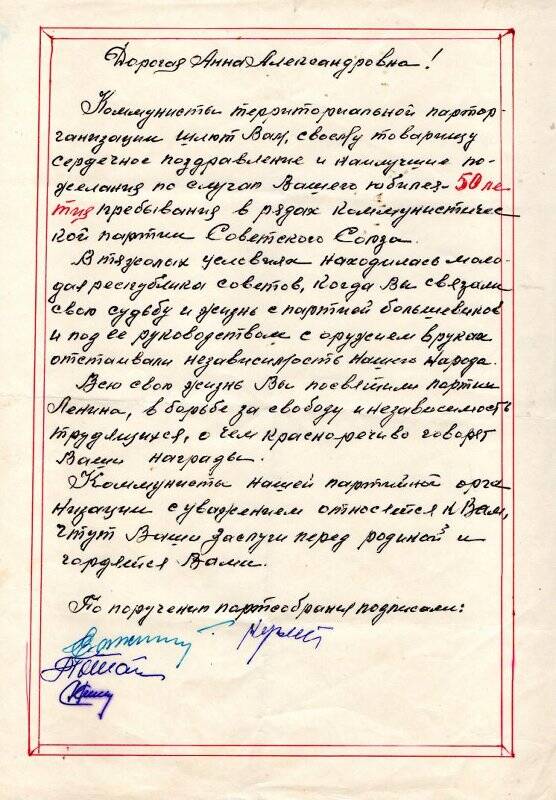 Дорогая Анна Александровна!
Коммунисты территориальной партор-
ганизации шлют Вам, своему товарищу
сердечное поздравление и наилучшие по-
желания по случаю Вашего юбилея-50 ле-
тия пребывания в рядах коммунистичес
кой партии Советского Союза.
В тяжолых условиях находилась моло-
дая республика советов, когда Вы связали
свою судьбу и жизнь с партией большевиков
и под её руководством с оружием в руках
отстаивали независимость нашего народа.
Всю свою жизнь Вы посвятили партии
Ленина, в борьбе за свободу и независимость
трудящихся, о чем красноречиво говорят
Ваши награды.
Коммунисты нашей партийной орга
низации с уважением относятся к Вам,
чтут Ваши заслуги перед родиной и
гордятся Вами.
По поручению партсобрания подписали: